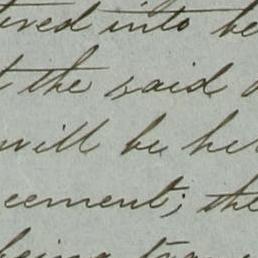 ered into be
t the said
will be her
eement; the
being